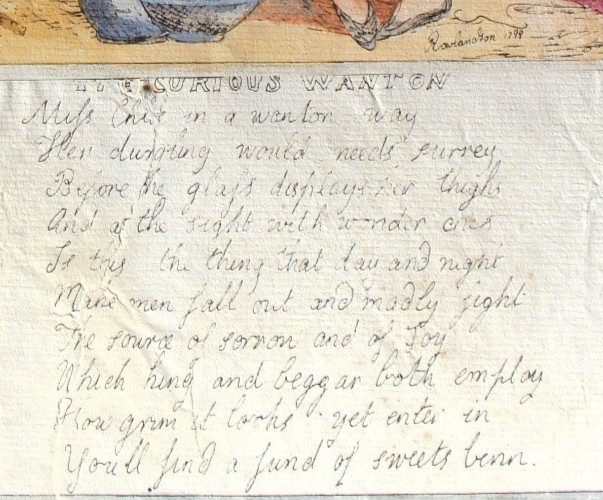 Rowlandson 1799
THE CURIOUS WANTON
Miss Chloe in a wanton way
Her durgling would needs survey
Before the glass displays her thighs
And at the sight with wonder cries
Is this the thing that day and night
Make men fall out and madly fight
The source of sorrow and of Joy
Which king and beggar both employ
How grim it looks yet enter in
You'll find a fund of sweets